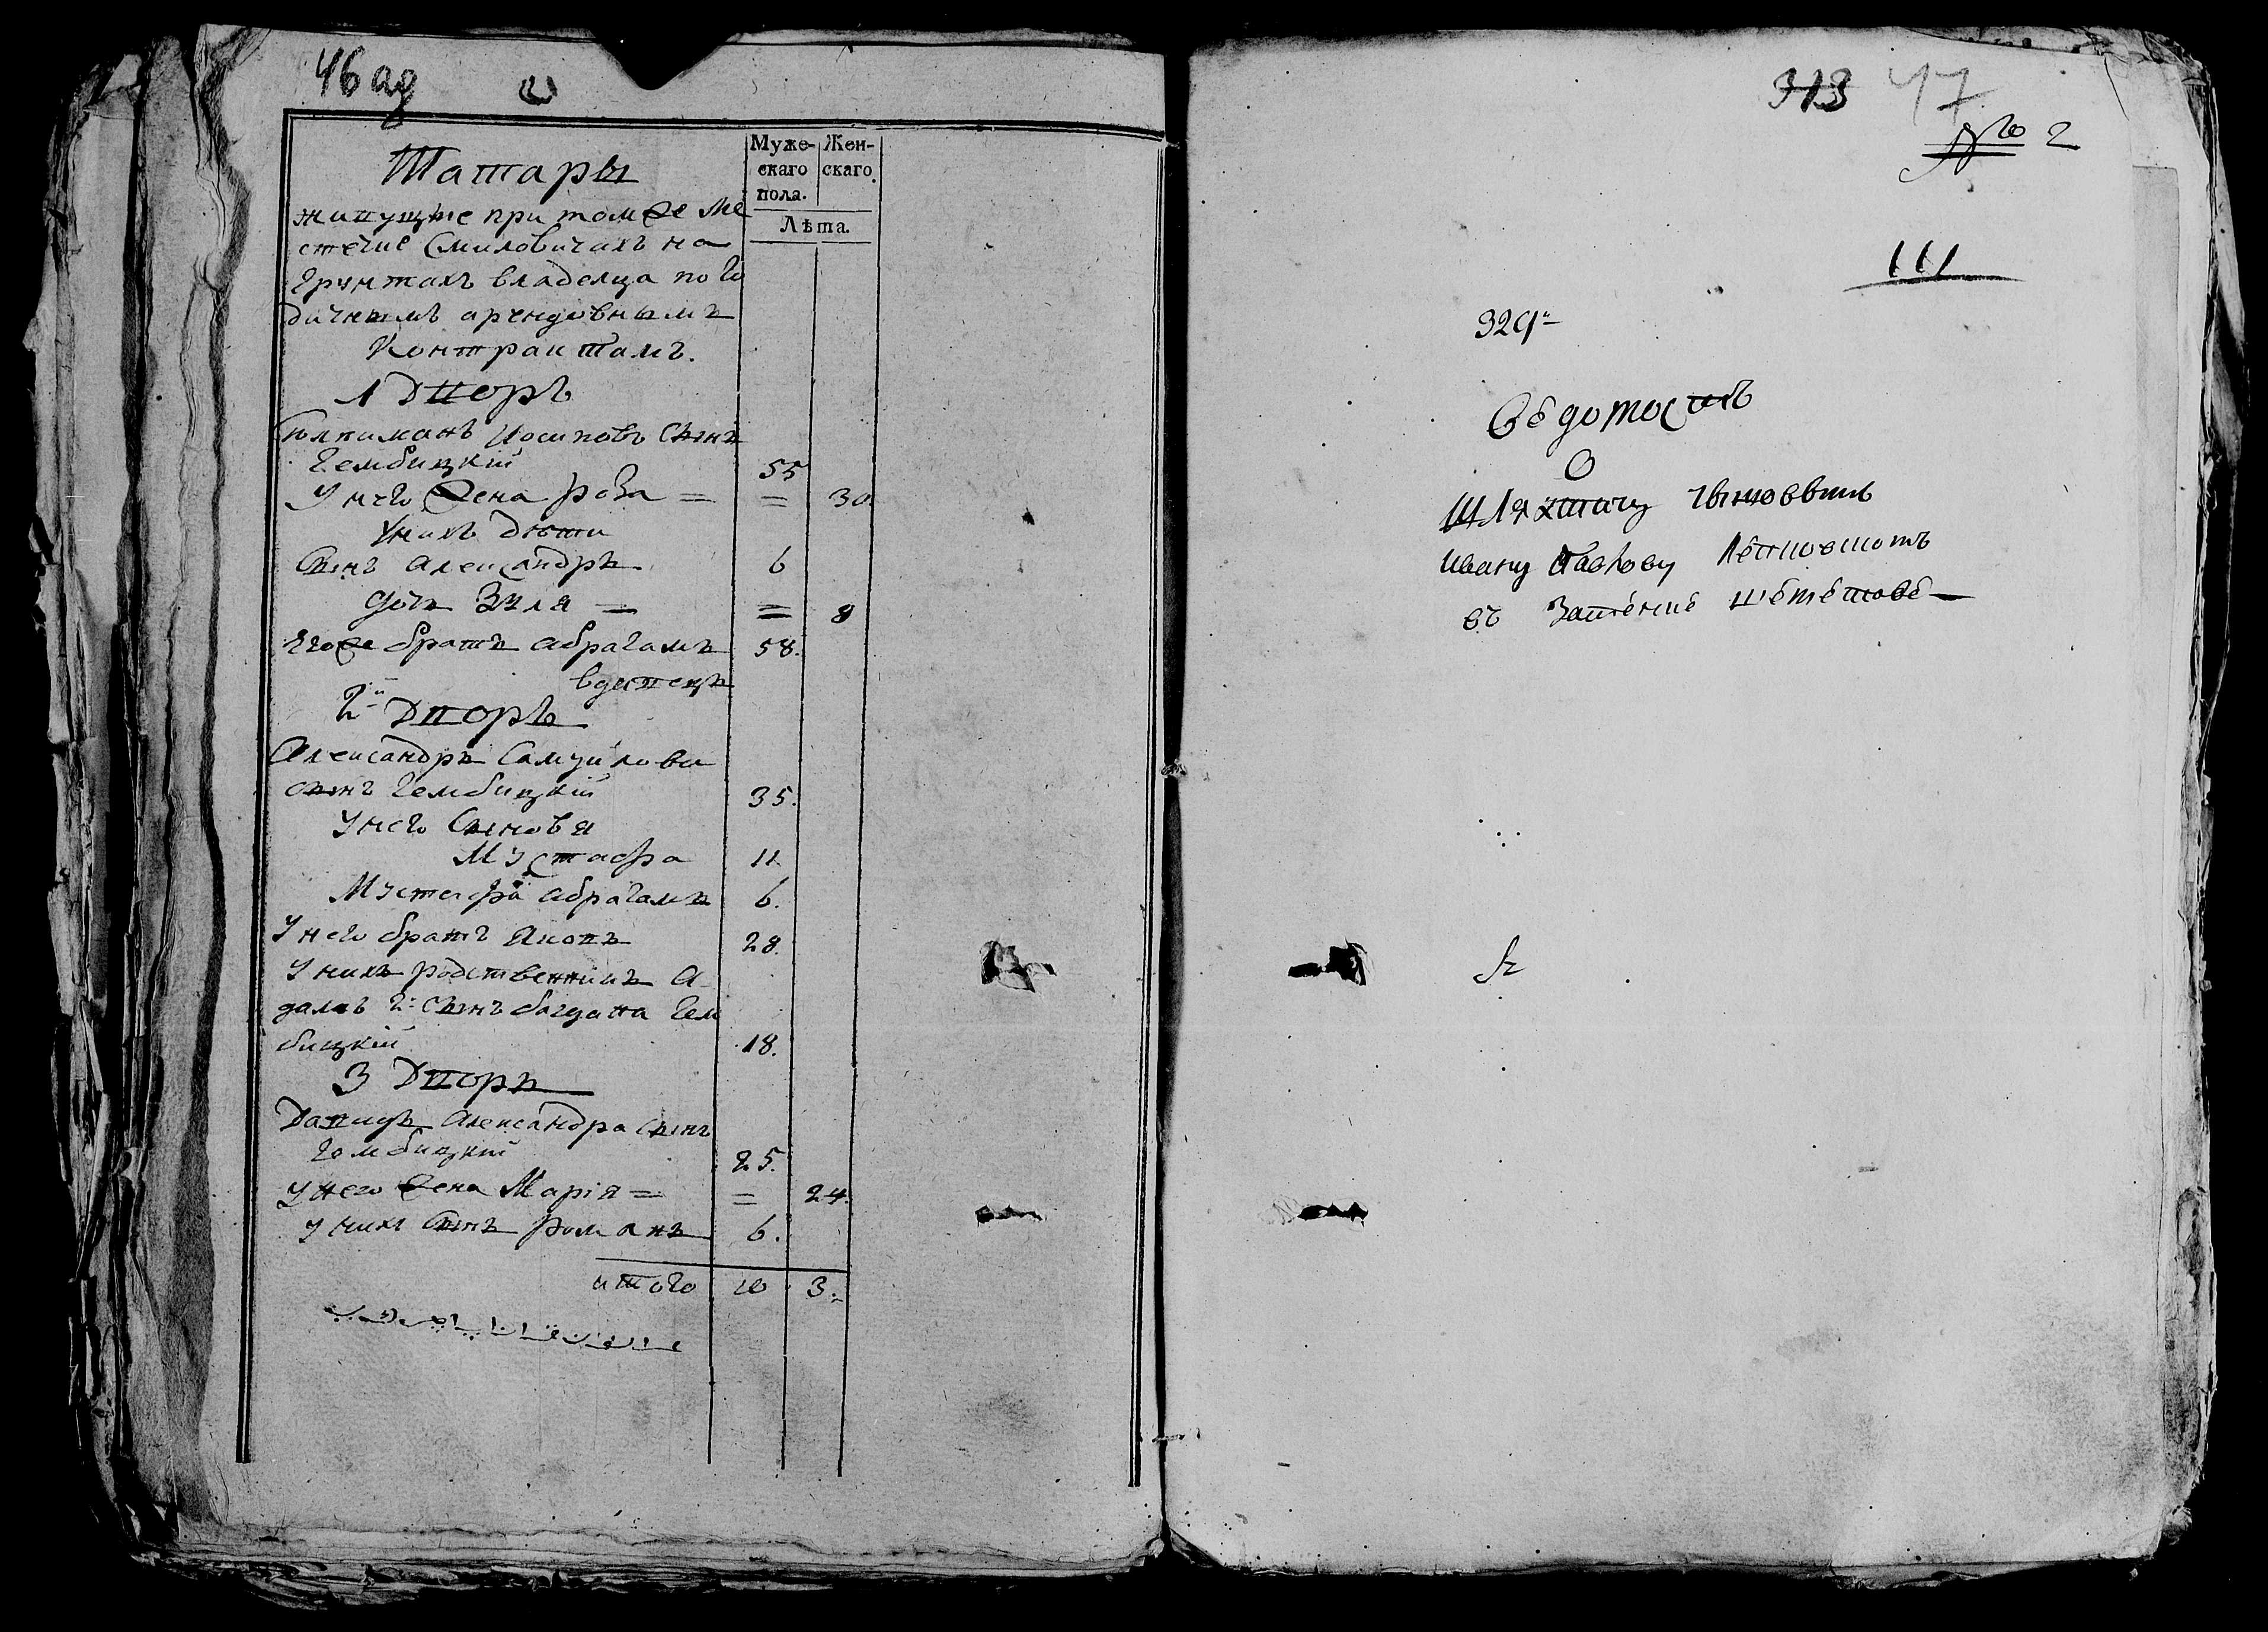 46 ад
Татары
Муже- Жен-
скаго скаго.
пола.
Лѣта.
живущие при томже ме
стечке Смиловичахъ на
грунтахъ владелца по го
дичнымъ арендовнымъ
Контрактамъ.
1 Дворъ
Сюлиманъ Иосиповъ сынъ
Гембицкій 55
У него жена Роза = = 30.
У нихъ дѣти
Сынъ Александръ 6
дочь Зеля = = 8
Егоже братъ Абрагамъ 58.
вдовецъ
2й Дворъ
Александръ Самуйлови
сынъ Гембицкій 35.
У него Сыновя
Мустафа 11
Мустафа Абрагамъ 6.
У него братъ Яковъ 28.
У нихъ родственникъ А-
дамъ 2: сынъ Богдана Гем
бицкій 18.
3 Дворъ
Давидъ Александра сынъ
Гембицкий 25.
У него жена Марія = = 24.
У нихъ Сынъ Романъ 6.
итого 10 3.
313 47
№ 2
111
329
Вѣдомость
О
Шляхтичу
Ивану Павлову
въ